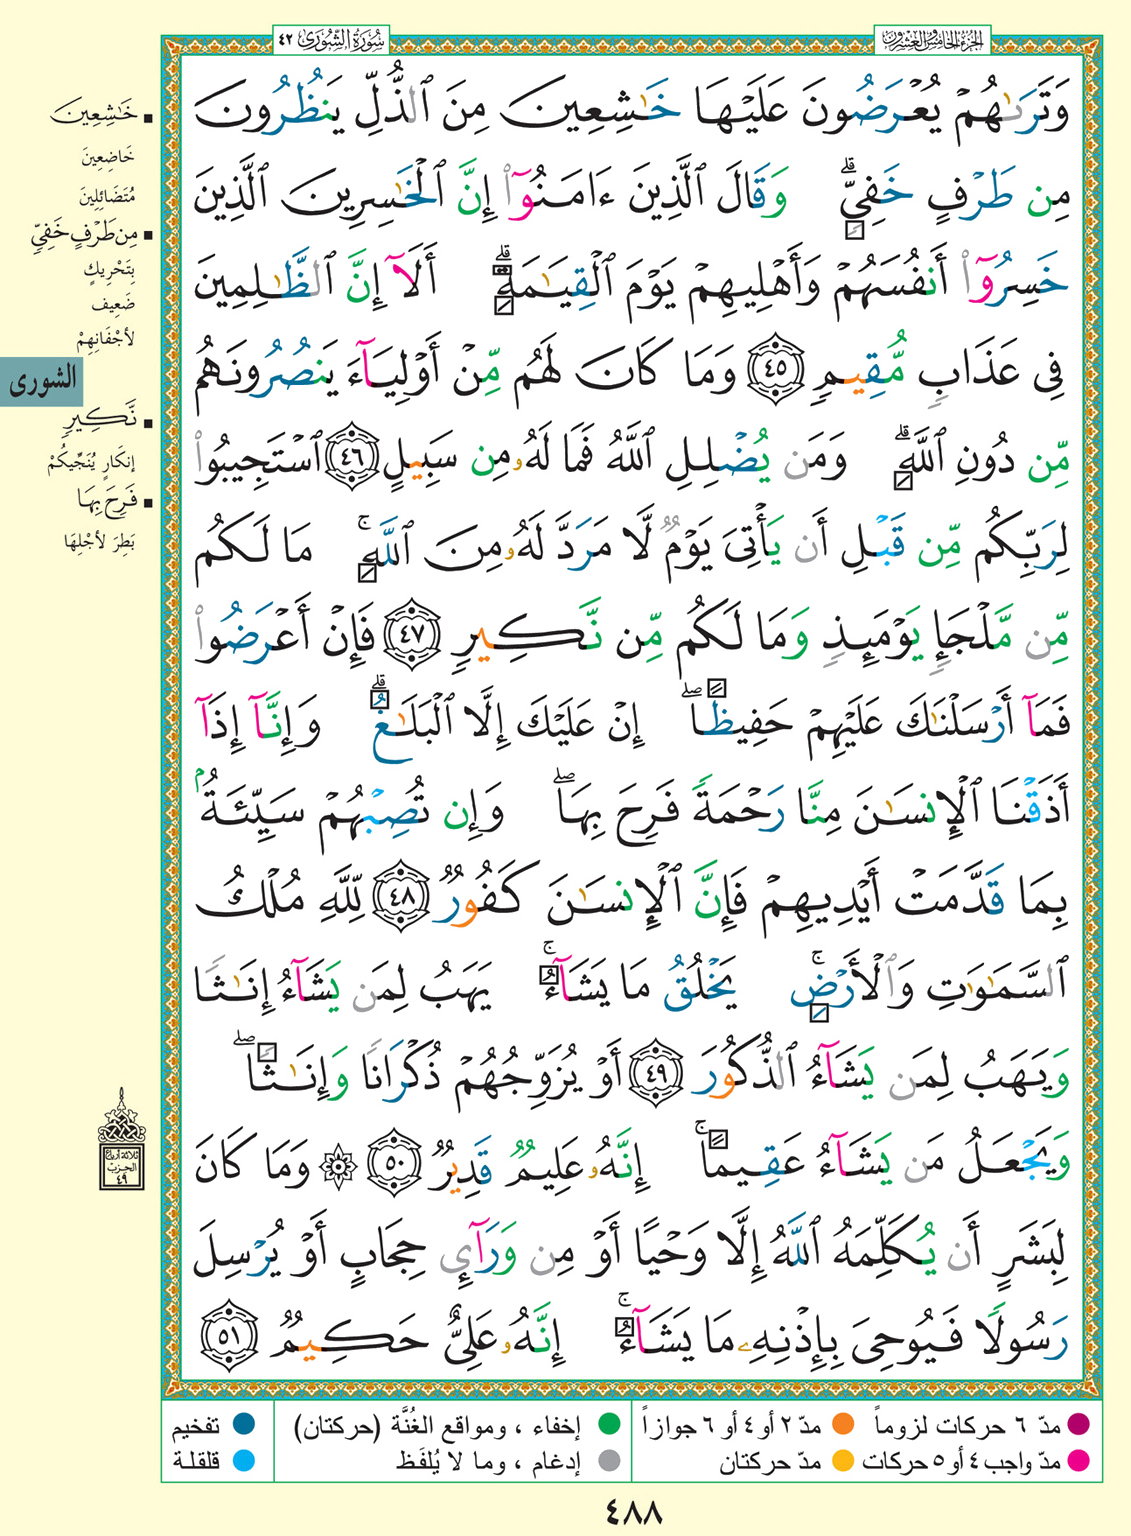 الجزء الخامس والعشرون
سُورَةُ الشُّورَى ٤٢
وَتَرَىٰهُمْ يُعْرَضُونَ عَلَيْهَا خَـٰشِعِينَ مِنَ ٱلذُّلِّ يَنظُرُونَ
مِن طَرْفٍ خَفِىٍّ ۗ وَقَالَ ٱلَّذِينَ ءَامَنُوٓا۟ إِنَّ ٱلْخَـٰسِرِينَ ٱلَّذِينَ
خَسِرُوٓا۟ أَنفُسَهُمْ وَأَهْلِيهِمْ يَوْمَ ٱلْقِيَـٰمَةِ ۗ أَلَآ إِنَّ ٱلظَّـٰلِمِينَ
فِى عَذَابٍ مُّقِيمٍ ٤٥ وَمَا كَانَ لَهُم مِّنْ أَوْلِيَآءَ يَنصُرُونَهُم
مِّن دُونِ ٱللَّهِ ۗ وَمَن يُضْلِلِ ٱللَّهُ فَمَا لَهُۥ مِن سَبِيلٍ ٤٦ ٱسْتَجِيبُوا۟
لِرَبِّكُم مِّن قَبْلِ أَن يَأْتِىَ يَوْمٌ لَّا مَرَدَّ لَهُۥ مِنَ ٱللَّهِ ۚ مَا لَكُم
مِّن مَّلْجَإٍ يَوْمَئِذٍ وَمَا لَكُم مِّن نَّكِيرٍ ٤٧ فَإِنْ أَعْرَضُوا۟
فَمَآ أَرْسَلْنَـٰكَ عَلَيْهِمْ حَفِيظًا ۖ إِنْ عَلَيْكَ إِلَّا ٱلْبَلَـٰغُ ۗ وَإِنَّآ إِذَآ
أَذَقْنَا ٱلْإِنسَـٰنَ مِنَّا رَحْمَةً فَرِحَ بِهَا ۖ وَإِن تُصِبْهُمْ سَيِّئَةٌۢ
بِمَا قَدَّمَتْ أَيْدِيهِمْ فَإِنَّ ٱلْإِنسَـٰنَ كَفُورٌ ٤٨ لِّلَّهِ مُلْكُ
ٱلسَّمَـٰوَٰتِ وَٱلْأَرْضِ ۚ يَخْلُقُ مَا يَشَآءُ ۚ يَهَبُ لِمَن يَشَآءُ إِنَـٰثًا
وَيَهَبُ لِمَن يَشَآءُ ٱلذُّكُورَ ٤٩ أَوْ يُزَوِّجُهُمْ ذُكْرَانًا وَإِنَـٰثًا ۖ
وَيَجْعَلُ مَن يَشَآءُ عَقِيمًا ۚ إِنَّهُۥ عَلِيمٌ قَدِيرٌ ٥٠ ۞ وَمَا كَانَ
لِبَشَرٍ أَن يُكَلِّمَهُ ٱللَّهُ إِلَّا وَحْيًا أَوْ مِن وَرَآئِ حِجَابٍ أَوْ يُرْسِلَ
رَسُولًا فَيُوحِىَ بِإِذْنِهِۦ مَا يَشَآءُ ۚ إِنَّهُۥ عَلِىٌّ حَكِيمٌ ٥١
خَـٰشِعِينَ
خَاضِعِينَ
مُتَضَائِلِينَ
مِن طَرْفٍ خَفِىٍّ
بِتَحْرِيكٍ
ضَعِيف
لأَجْفَانِهِمْ
الشورى
نَّكِيرٍ
إنكَارٍ يُنَجِّيكُمْ
فَرِحَ بِهَا
بَطِرَ لأَجْلِهَا
ثلاثة أرباع
الحزب
٤٩
مدّ ٦ حركات لزوماً
مدّ ٢ أو ٤ أو ٦ جوازاً
إخفاء ، ومواقع الغُنَّة (حركتان)
تفخيم
مدّ واجب ٤ أو ٥ حركات
مدّ حركتان
إدغام ، وما لا يُلفَظ
قلقلة
٤٨٨